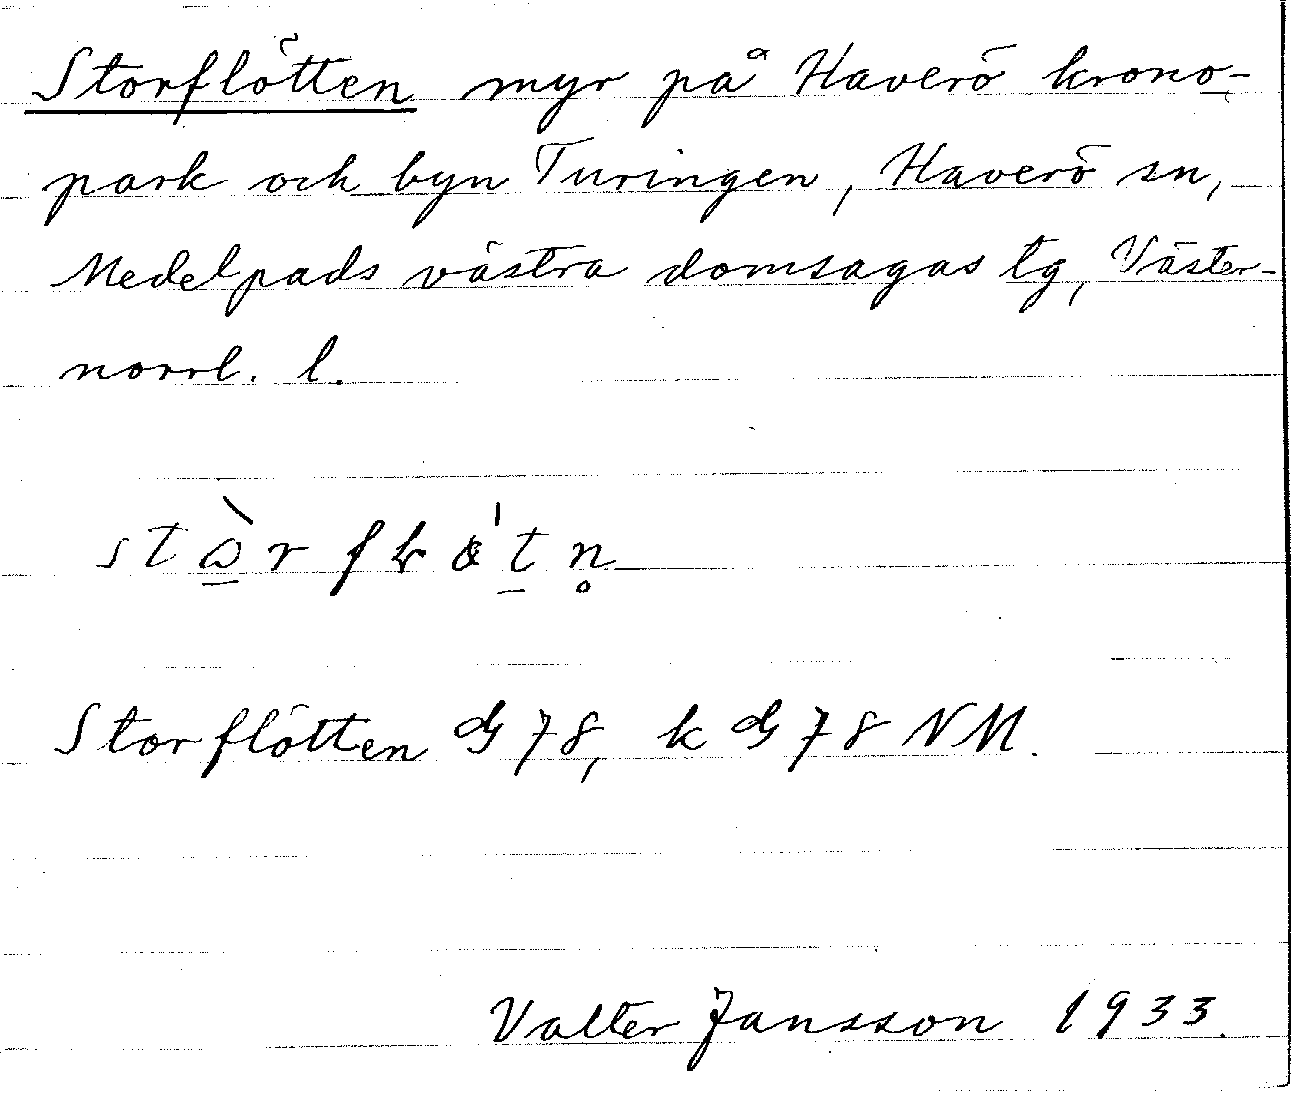 Storflötten myr på Haverö krono-
park och byn Turingen, Haverö sn,
Medelpads västra domsagas tg, Väster-
norrl. l.
Storflötten dG 78, k dG 78 NM.
Valter Jansson 1933.